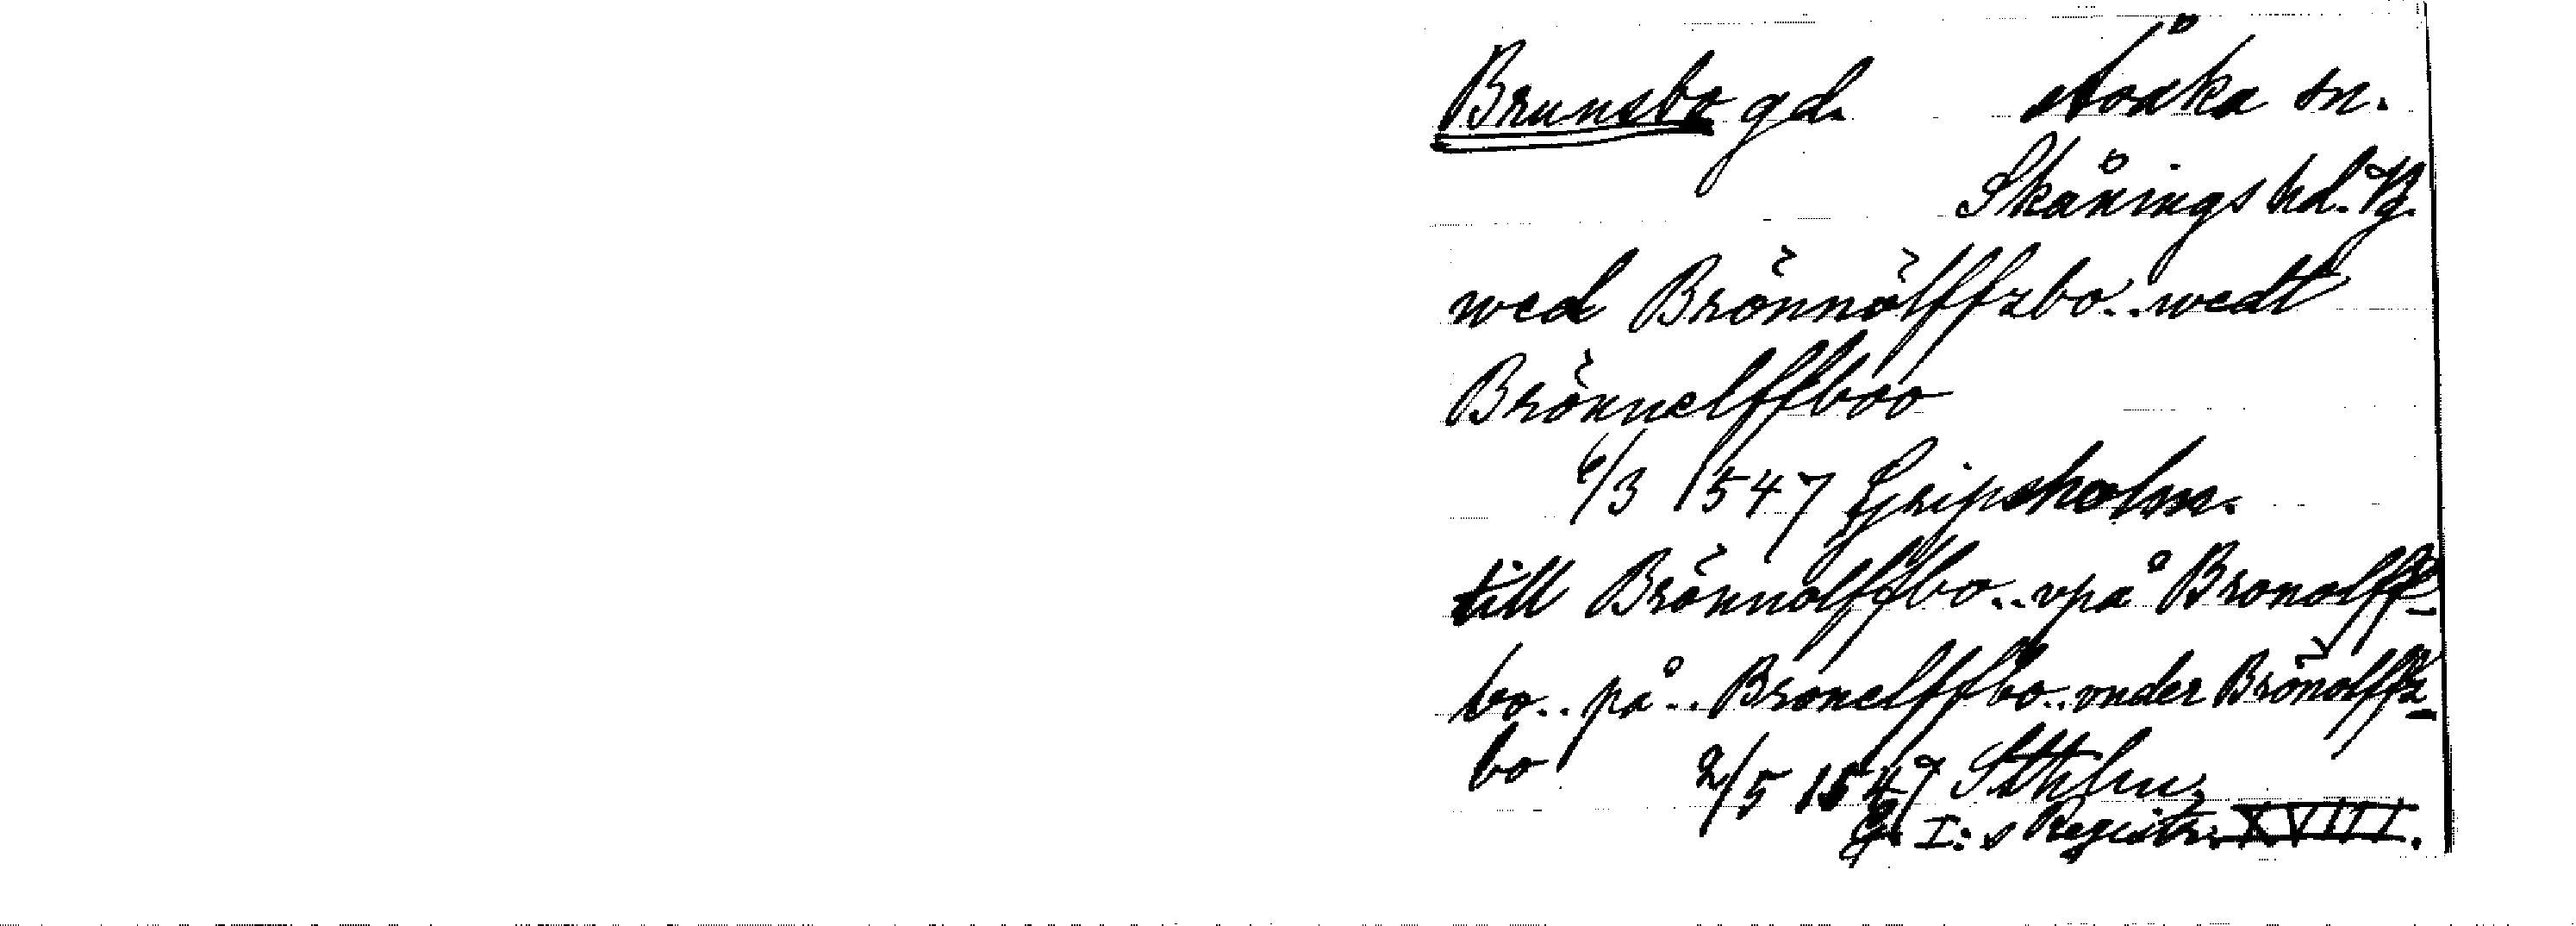 Brunsbo gd. Åsaka sn.
Skånings hd. Vg.
wed Brönnölffzbo.. wedt
Brönnelffboo
6/3 1547 Gripsholm.
till Brönnolffzbo.. vpå Bronolffz-
bo.. på.. Bronelffbo.. vnder Brönolffz-
bo 2/5 1547 Sthlm,
G. I:s Registr. XVIII.